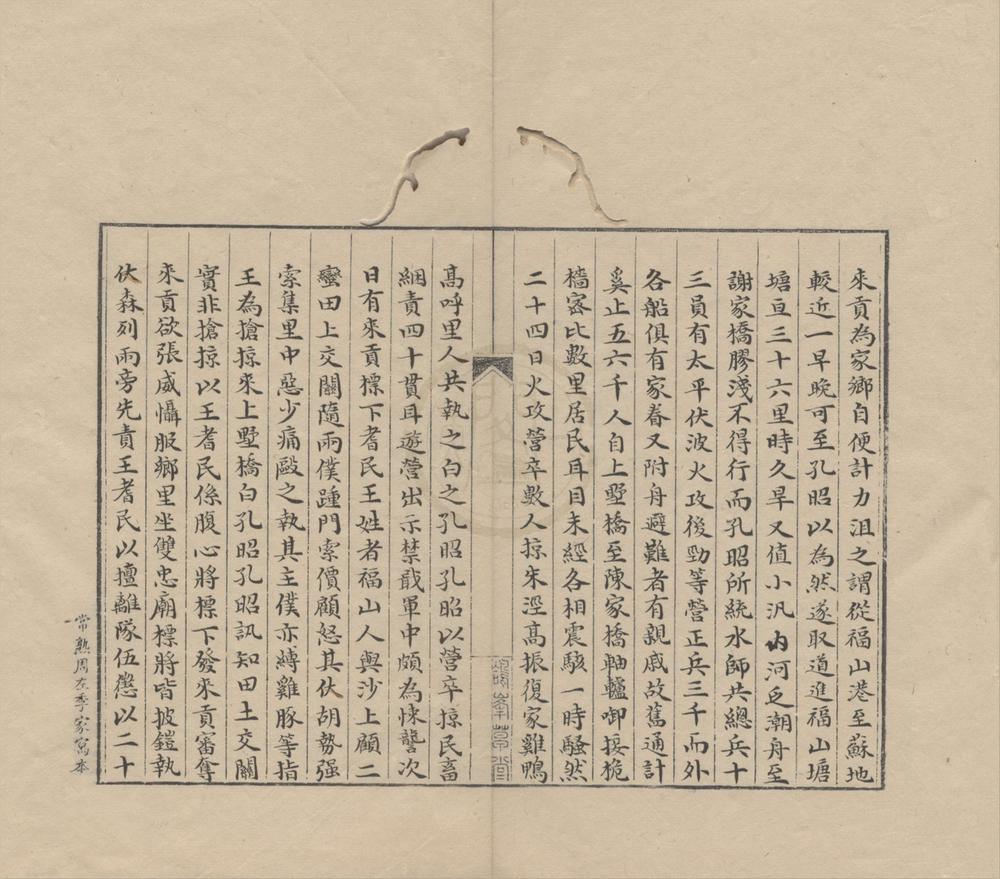 來貢為家鄉自便計力沮之謂從福山港至蘇地
較近一早晚可至孔昭以為然遂取道進福山塘
塘亘三十六里時久旱又值小汛內河乏潮舟至
謝家橋膠淺不得行而孔昭所統水師共總兵十
三員有太平伏波火攻後勁等營正兵三千而外
各船俱有家眷又附舟避難者有親戚故舊通計
奚止五六千人自上墅橋至陳家橋軸轤啣接桅
檣密比數里居民耳目未經各相震駭一時騷然
二十四日火攻營卒數人掠朱涇高振復家雞鴨
高呼里人共執之白之孔昭孔昭以營卒掠民畜
綑責四十貫耳遊營出示禁戢軍中頗為悚讋次
日有來貢摽下耆民王姓者福山人與沙上顧二
蠻田上交關隨兩僕踵門索價顧怒其伏胡勢强
索集里中惡少痛毆之執其主僕亦縛雞豚等指
王為搶掠來上墅橋白孔昭孔昭訊知田土交關
實非搶掠以王耆民係腹心將摽下發來貢審奪
來貢欲張威懾服鄉里坐雙忠廟標將皆披鎧執
仗森列兩旁先責王耆民以擅離隊伍懲以二十
鴿峯草堂
常熟周左季家寫本